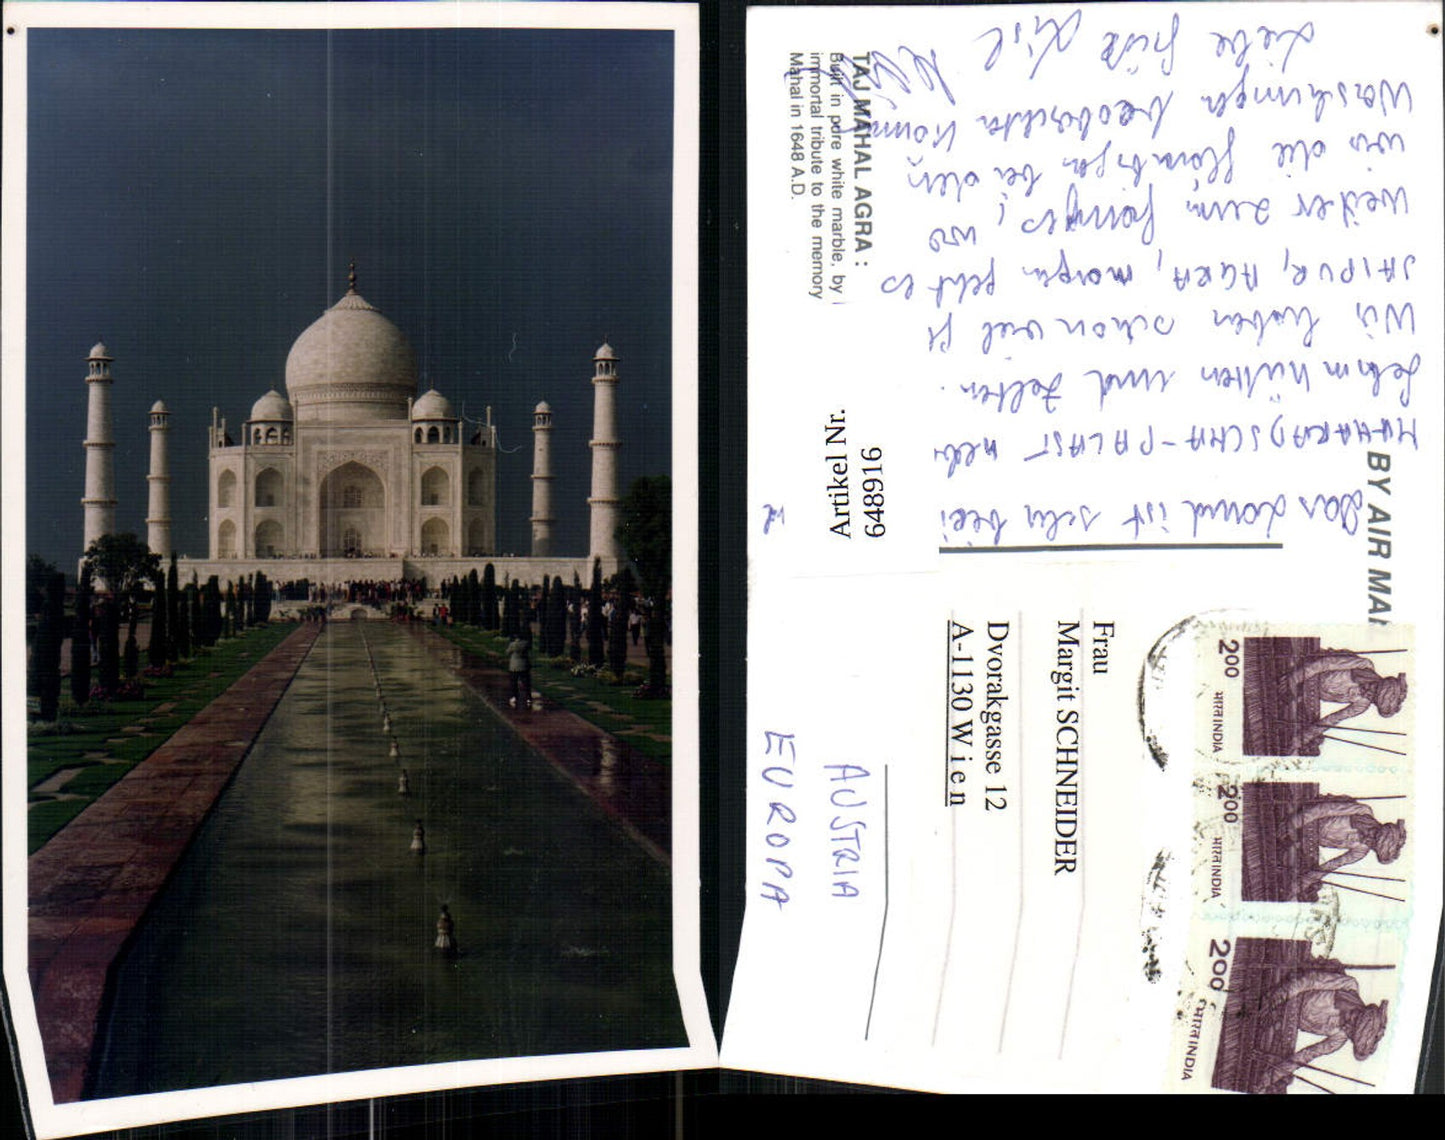 TAJ MAHAL AGRA :
Built in pure white marble, by
immortal tribute to the memory
Mahal in 1648 A.D.
Artikel Nr.
648916
BY AIR MAI
Das Land ist sehr
MAHARADSCHA-PALAST
Lehmhütten und Zelten.
Wir haben schon viel
JAIPUR, AGRA, morgen geht es
weiter zum Ganges, wo
wir die bei den
Waschungen beobachten
Liebe Grüße
Frau
Margit SCHNEIDER
Dvorakgasse 12
A-1130 Wien
AUSTRIA
EUROPA
200
भारत INDIA
200
भारत INDIA
200
भारत INDIA